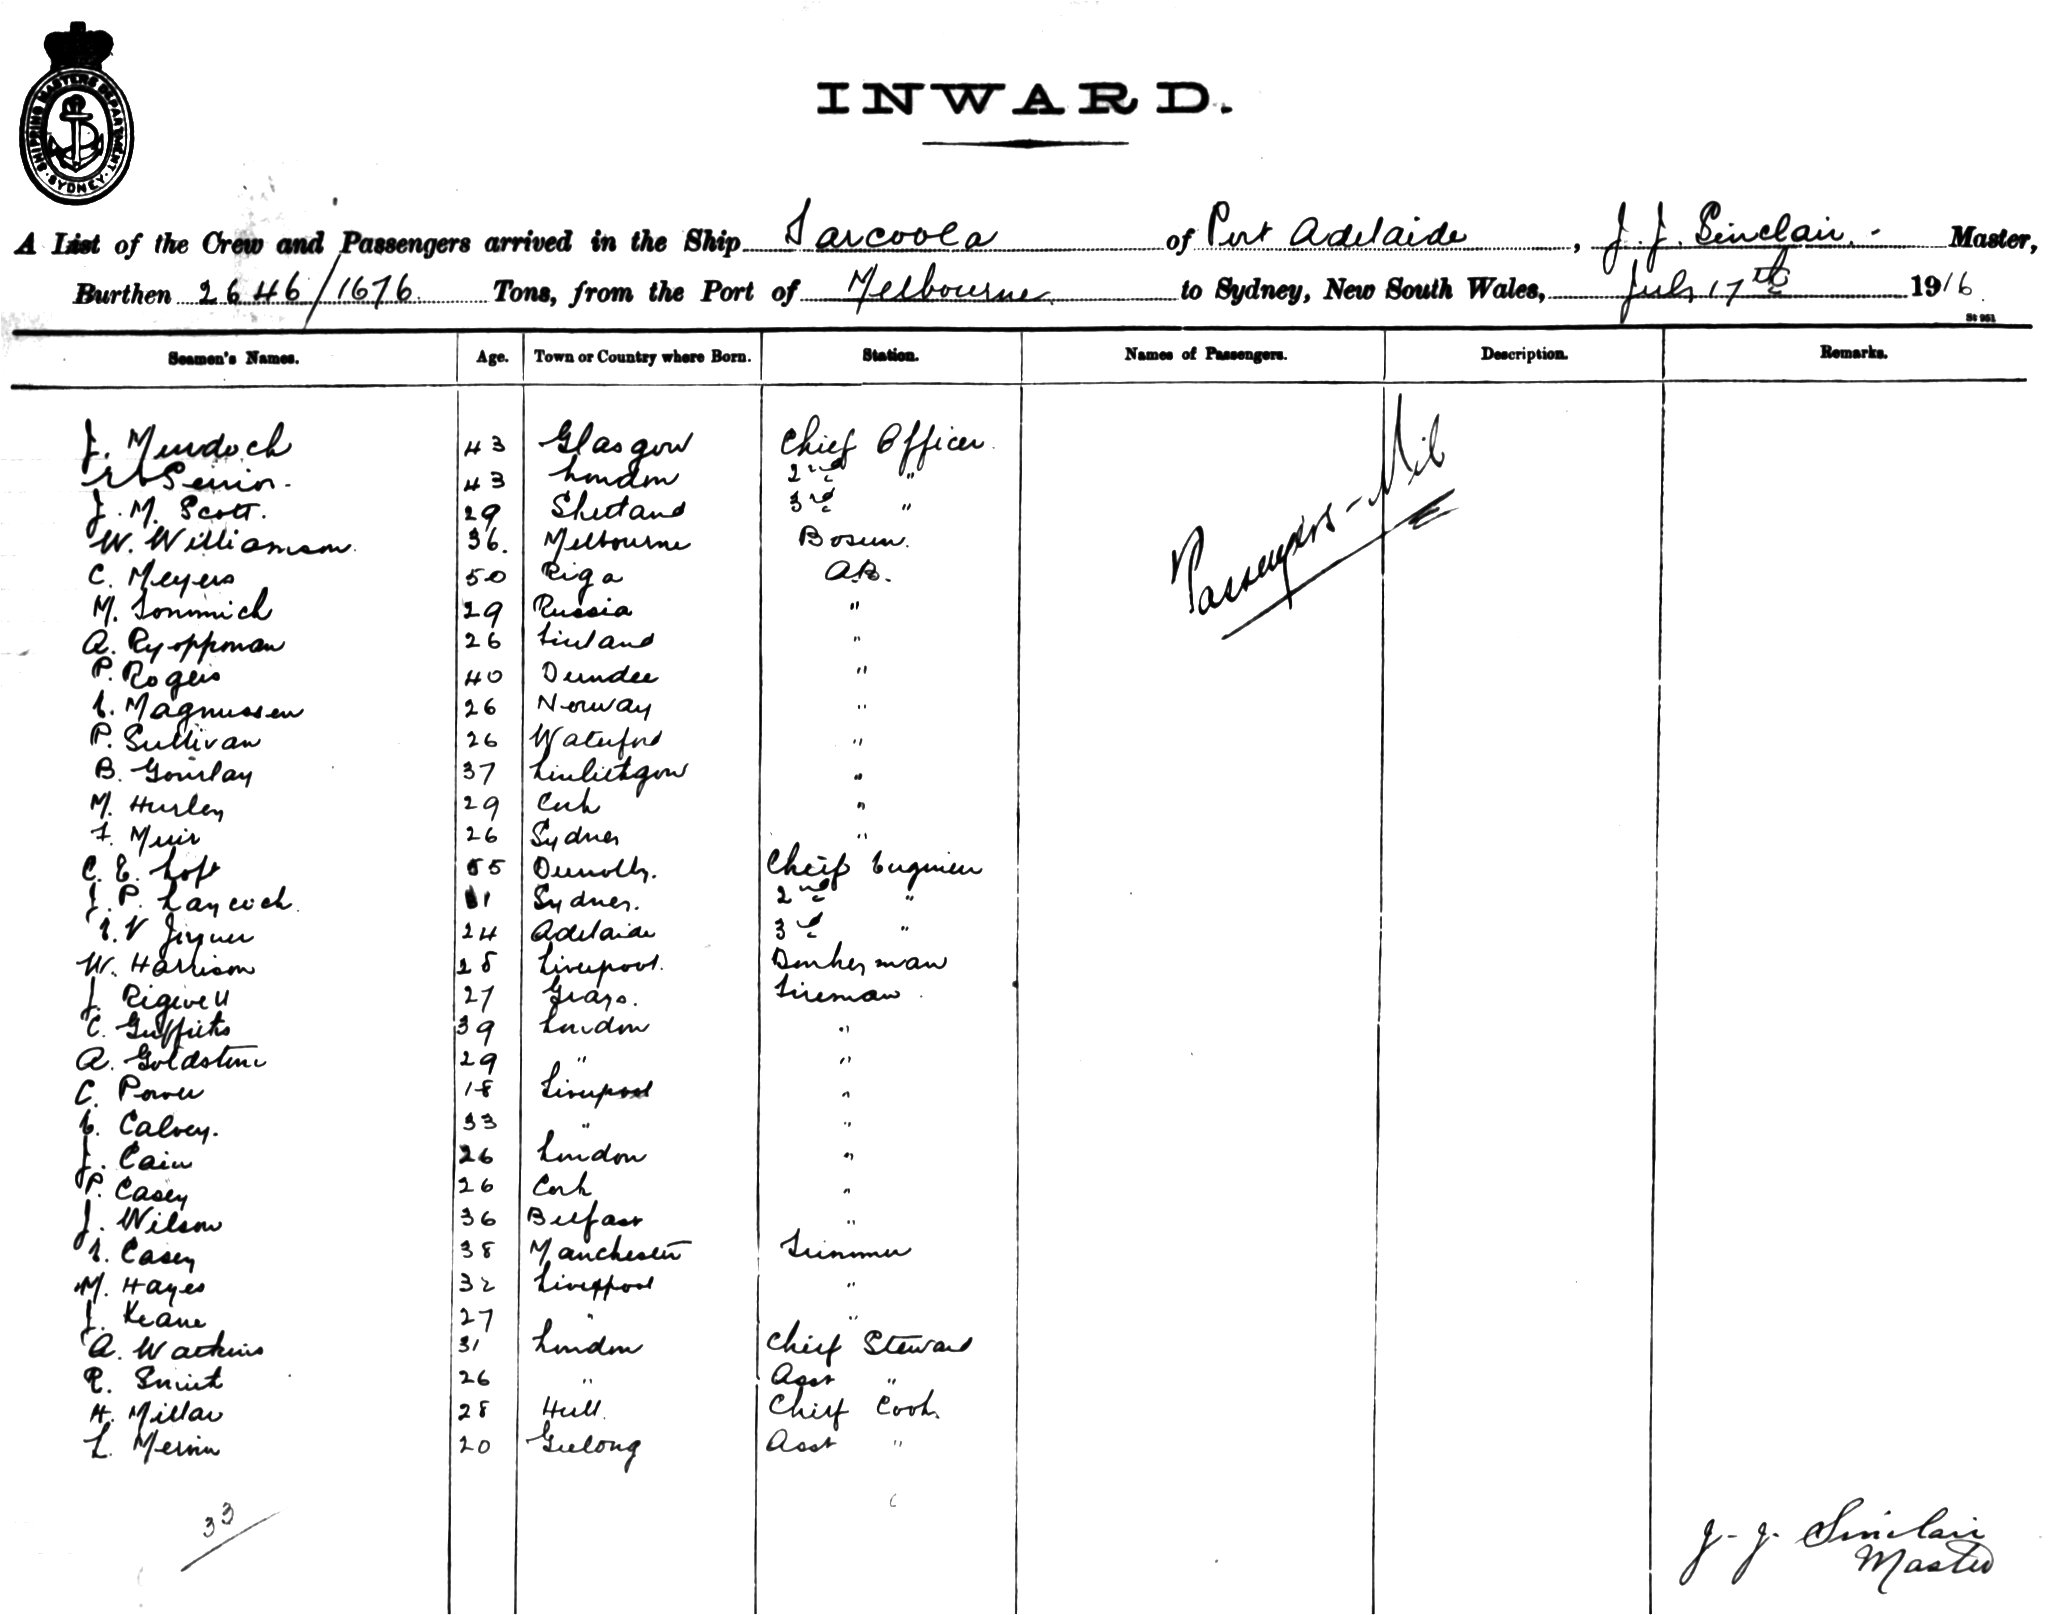 SHIPPING MASTERS DEPARTMENT. SYDNEY.
INWARD.
A List of the Crew and Passengers arrived in the Ship Tarcoola of Port Adelaide, J. J. Sinclair. Master,
Burthen 2646/1676 Tons, from the Port of Melbourne to Sydney, New South Wales, July 17th 1916
St 951
Seamen's Names. Age. Town or Country where Born. Station. Names of Passengers. Description. Remarks.
Passengers - Nil
J. Murdoch 43 Glasgow Chief Officer.
Senior. 43 London 2nd "
J. M. Scott. 29 Shetland 3rd "
W. Williamson. 36. Melbourne Bosun.
C. Meyers 50 Riga A.B.
M. 29 Russia "
A. Ryoppman 26 Finland "
P. Rogers 40 Dundee "
E. Magnussen 26 Norway "
P. Sullivan 26 Waterford "
B. Gourlay 37 Linlithgow "
M. Hurley 29 Cork "
F. Muir 26 Sydney "
C. E. Loft 55 Dunolly. Chief Engineer
J. P. Laycock 1 Sydney. 2nd "
E. V 24 Adelaide 3rd "
W. Harrison 28 Liverpool. Donkeyman
J. Rigwell 27 Grays. Fireman
C. Griffiths 39 London "
A. Goldstone 29 " "
C. Power 18 Liverpool "
E. Calvey. 33 " "
J. Cain 26 London "
P. Casey 26 Cork "
J. Wilson 36 Belfast "
E. Casey 38 Manchester Trimmer
M. Hayes 32 Liverpool "
J. Keane 27 " "
A. Watkins 31 London Chief Steward
R. Smith 26 " Asst "
H. Millar 28 Hull. Chief Cook.
L. 20 Geelong Asst "
33
J. J. Sinclair
Master